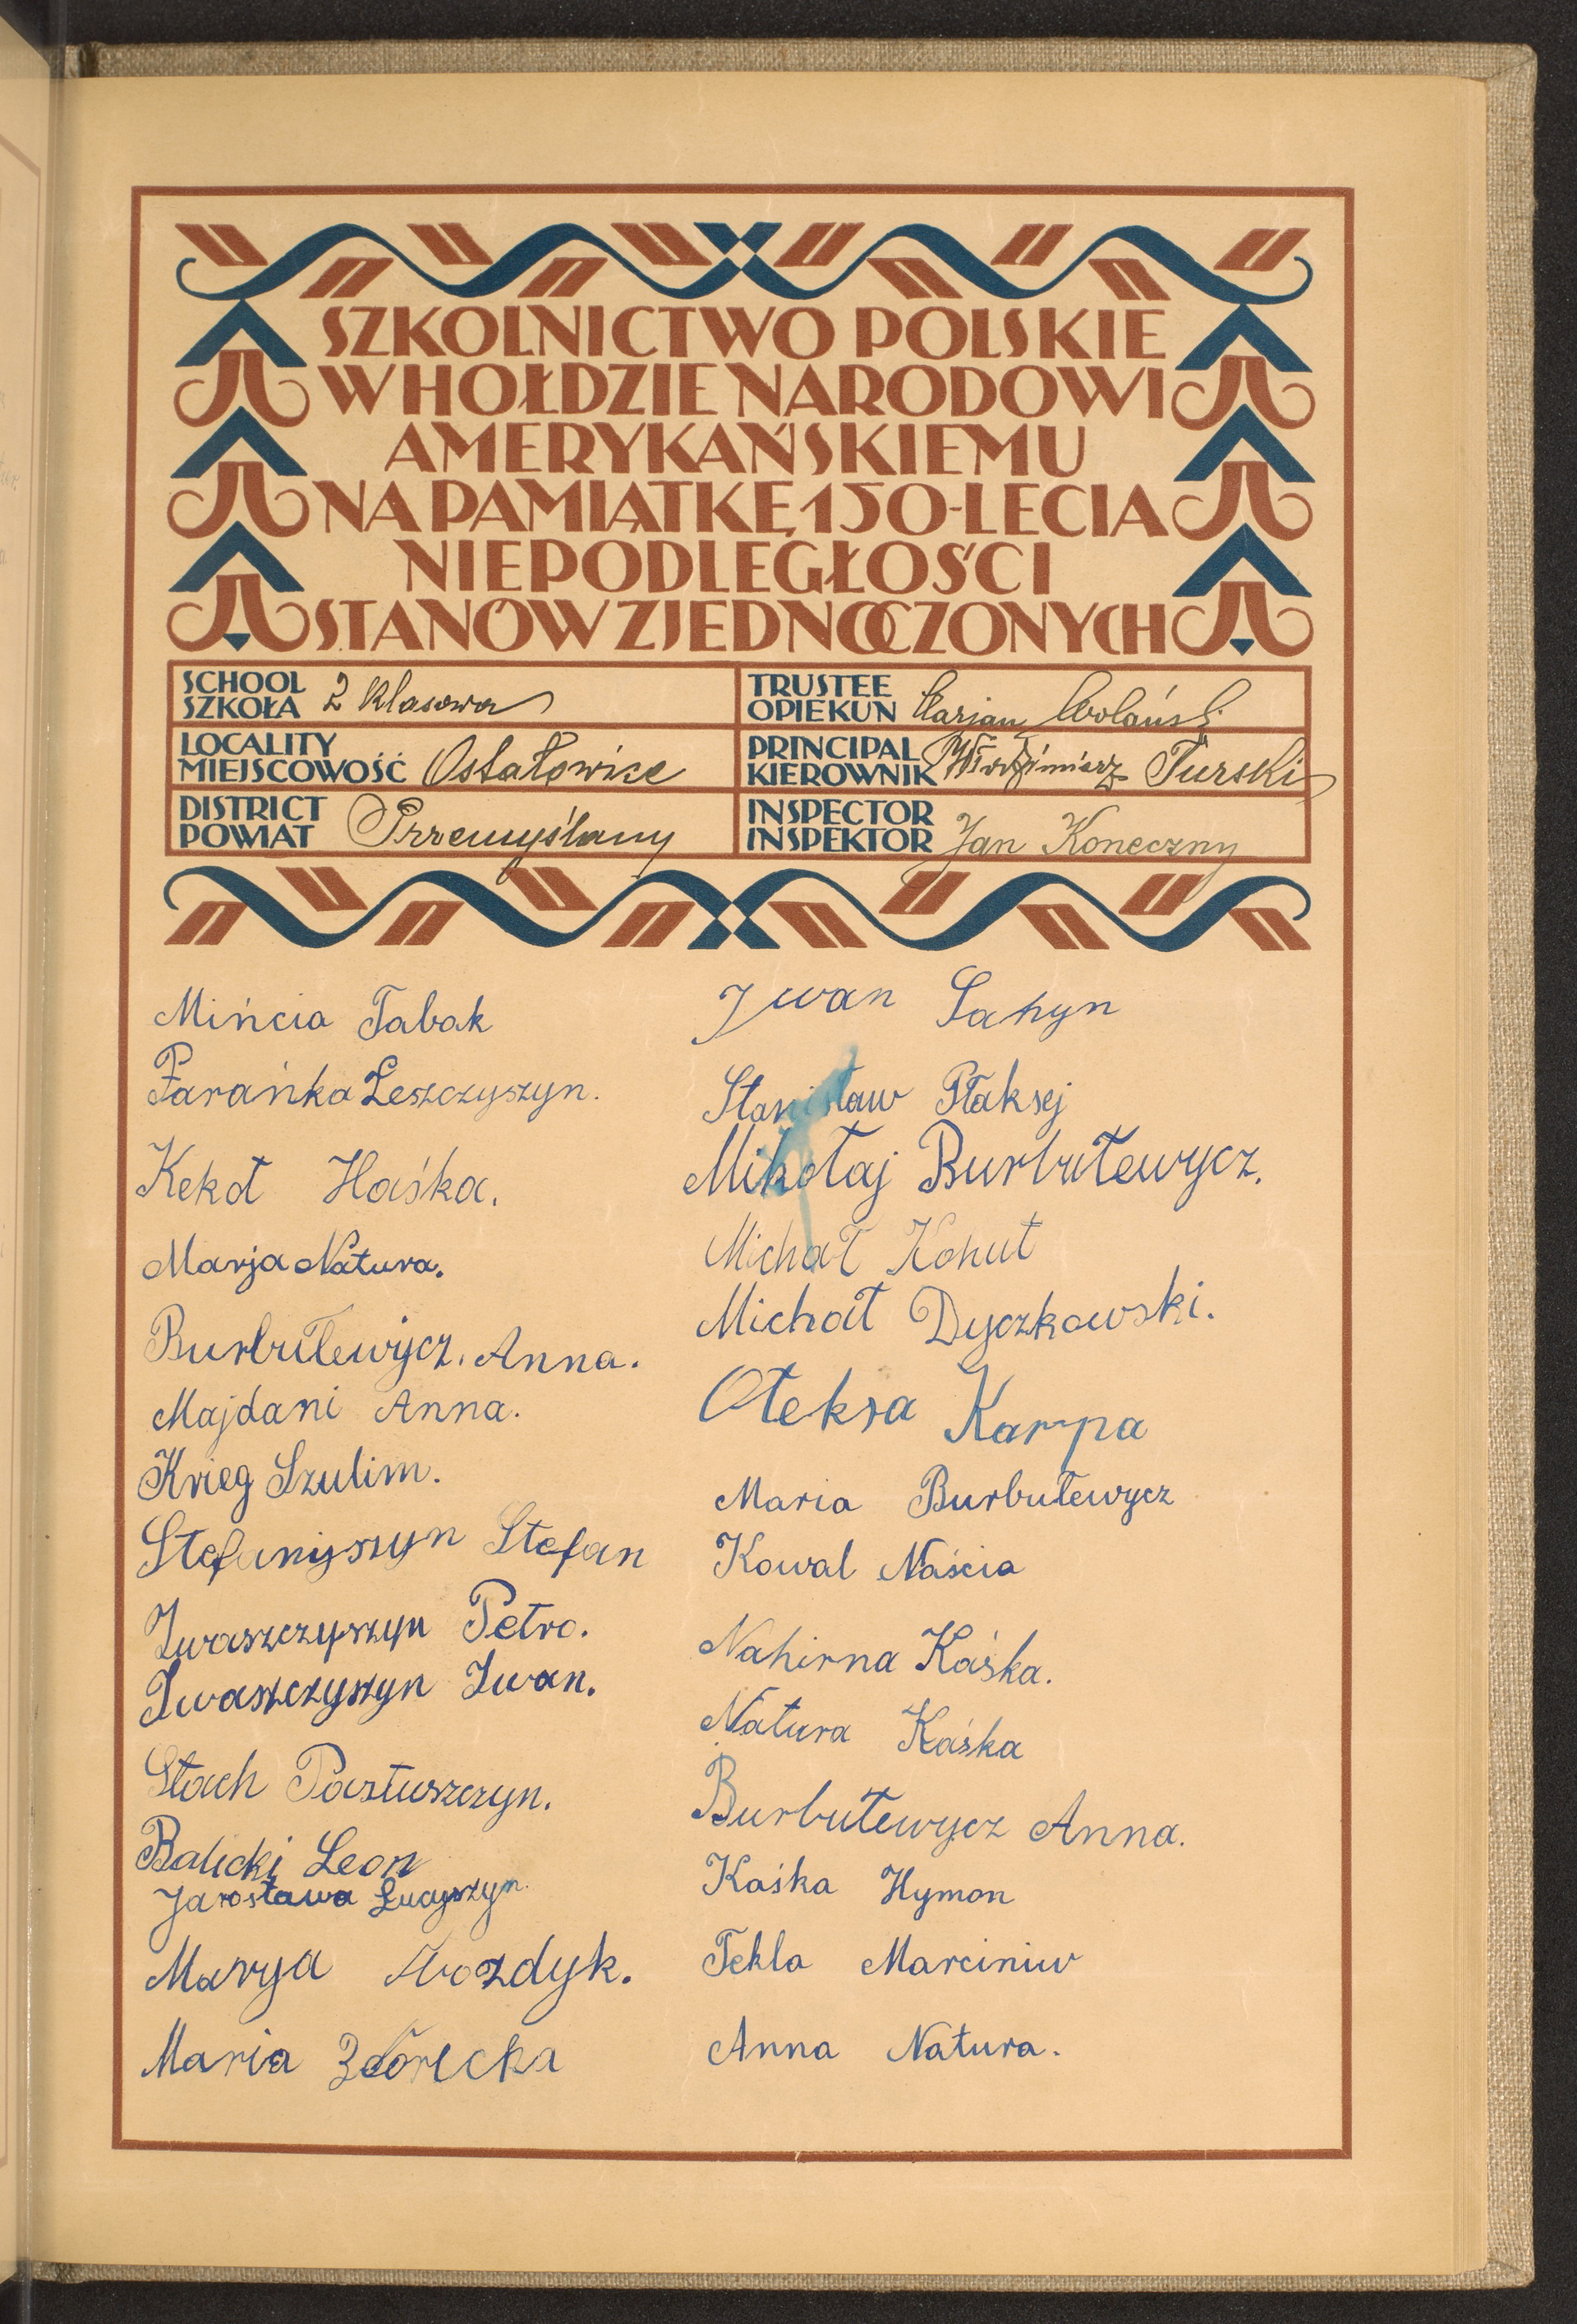 SZKOLNICTWO POLSKIE
W HOŁDZIE NARODOWI
AMERYKAŃSKIEMU
NA PAMIĄTKĘ 150-LECIA
NIEPODLEGŁOŚCI
STANÓW ZJEDNOCZONYCH
SCHOOL
SZKOŁA 2 klasowa
TRUSTEE
OPIEKUN Marjan Wolański
LOCALITY
MIEJSCOWOŚĆ Ostałowice
PRINCIPAL
KIEROWNIK Włodzimierz Turski
DISTRICT
POWIAT Przemyślany
INSPECTOR
INSPEKTOR Jan Koneczny
Mińcia Tabak
Parańka Leszczyszyn.
Kekot Haśka.
Marja Natura.
Burbułewycz. Anna.
Majdani Anna.
Krieg Szulim.
Stefaniyszyn Stefan
Iwaszczyszyn Petro.
Iwaszczyszyn Iwan.
Stach Pastuszczyn.
Balicki Leon
Jarosława Lucyszyn.
Marya Hwozdyk.
Maria
Iwan Sahyn
Stanisław Ptaksej
Mikołaj Burbułewycz.
Michał Kohut
Michał Dyczkowski.
Ołeksa Karpa
Maria Burbułewycz
Kowal Naścia
Nahirna Kaśka.
Natura Kaśka
Burbułewycz Anna.
Kaśka Hymon
Tekla Marciniw
Anna Natura.